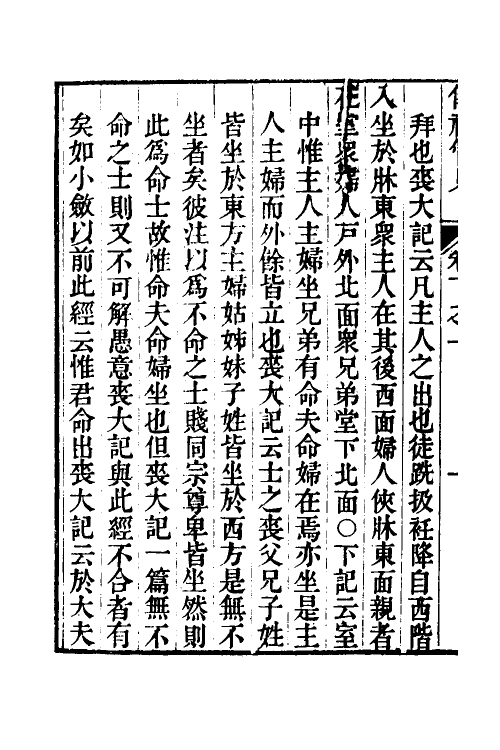 拜也喪大記云凡主人之出也徒跣扱衽降自西階
入坐於牀東衆主人在其後西面婦人俠牀東面親者
在室衆婦人戶外北面衆兄弟堂下北面○下記云室
中惟主人主婦坐兄弟有命夫命婦在焉亦坐是主
人主婦而外餘皆立也喪大記云士之喪父兄子姓
皆坐於東方主婦姑姊妹子姓皆坐於西方是無不
坐者矣彼注以爲不命之士賤同宗尊卑皆坐然則
此爲命士故惟命夫命婦坐也但喪大記一篇無不
命之士則又不可解愚意喪大記與此經不合者有
矣如小斂以前此經云惟君命出喪大記云於大夫